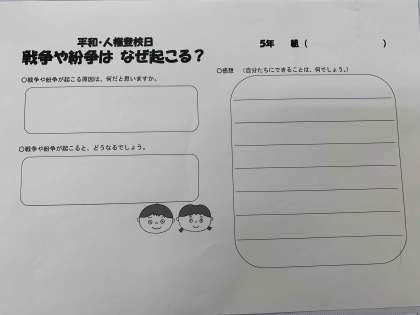 平和・人権登校日
戦争や紛争は なぜ起こる？
○戦争や紛争が起こる原因は、何だと思いますか。
○戦争や紛争が起こると、どうなるでしょう。
5年　組（　　　　　　）
○感想　（自分たちにできることは、何でしょう。）